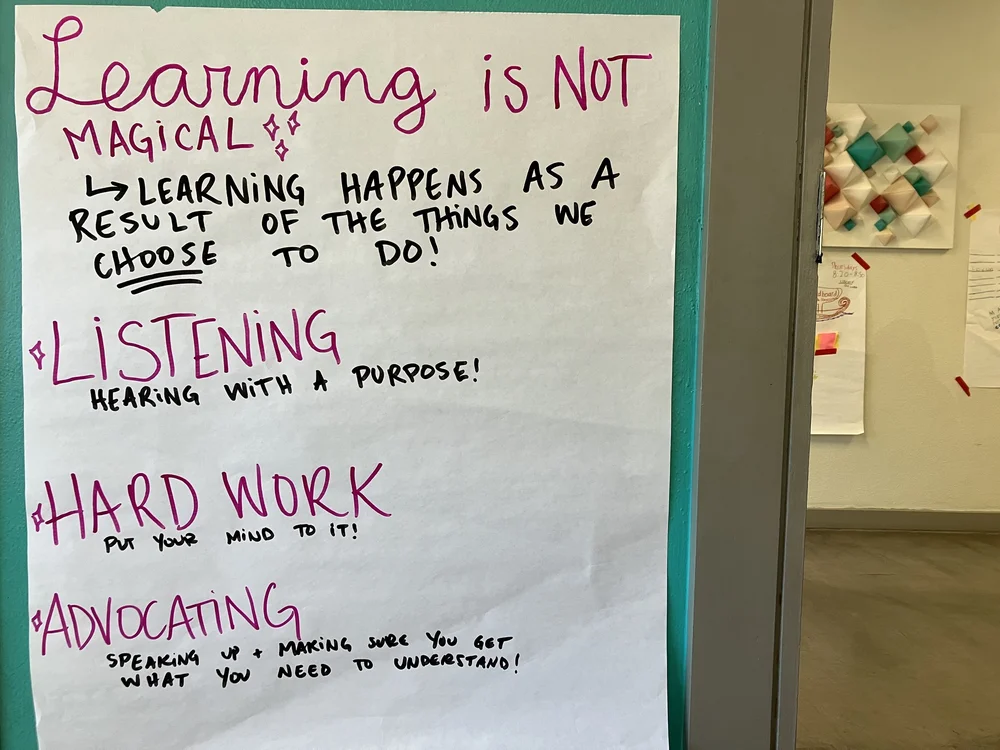 Learning is NOT
MAGICAL
LEARNiNG HAPPENS AS A
RESULT OF THE THiNGS WE
CHOOSE TO DO!
LiSTENiNG
HEARiNG WiTH A PURPOSE!
HARD WORK
PUT YOUR MiND TO iT!
ADVOCATiNG
SPEAKiNG UP + MAKiNG SURE YOU GET
WHAT YOU NEED TO UNDERSTAND!
Thursdays